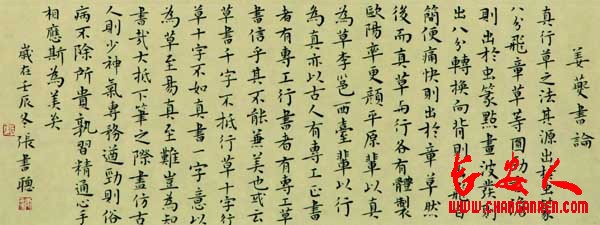 姜夔書論
真行草之法其源出於虫篆
八分飛章草等圓勁
則出於虫篆點畫波發則
出八分轉換向背則
簡便痛快則出於章草然
後而真草與行各有體製
歐陽率更顏平原輩以真
為草李邕西臺輩以行
為真亦以古人有專工正書
者有專工行書者有專工草
書信乎其不能兼美也或云
草書千字不抵行草十字行
草十字不如真書一字意以
為草至易真至難豈為知
書哉大抵下筆之際盡仿古
人則少神氣專務遒勁則俗
病不除所貴孰習精通心手
相應斯為美矣
歲在壬辰冬張書聰
长安人
WWW.CHANGANREN.COM